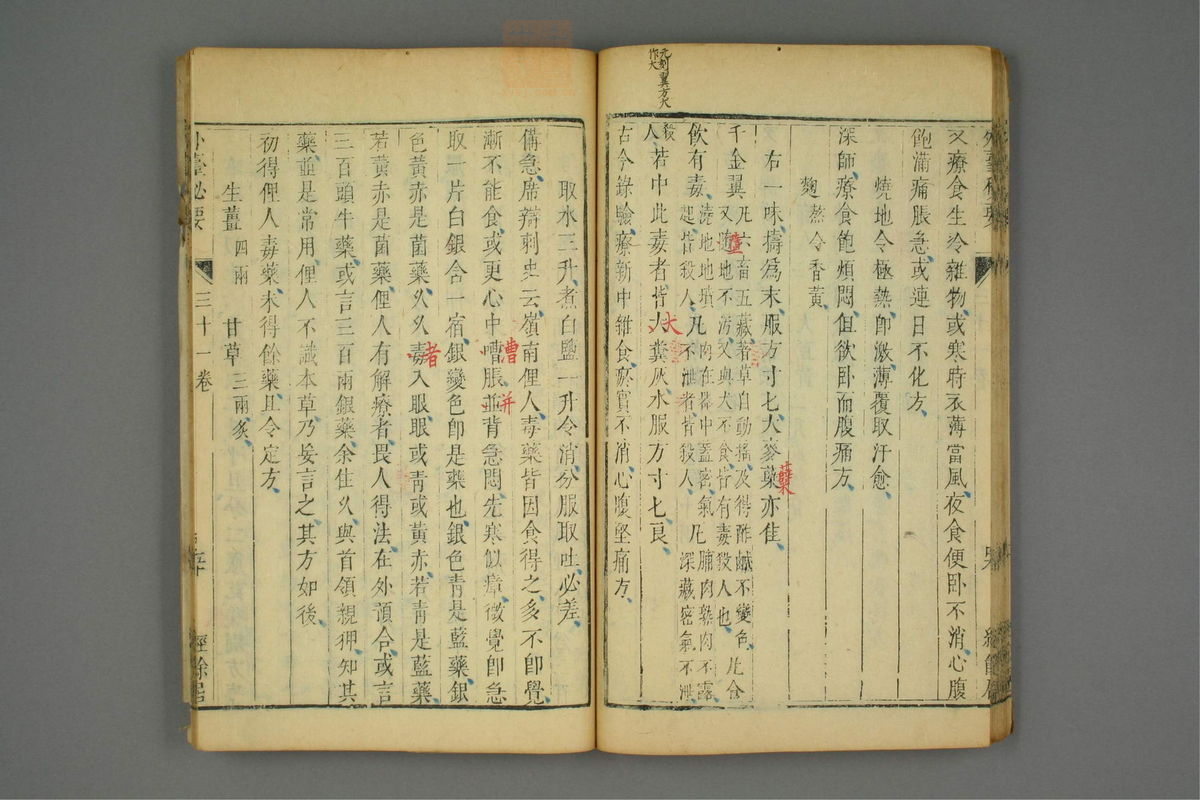 元刻翼方犬
作大
又療食生冷雜物或寒時衣薄當風夜食便臥不消心腹
飽滿痛脹急或連日不化方
燒地令極熱卽激薄覆取汗愈
深師療食飽煩悶但欲臥而腹痛方
麴熬令香黃
右一味擣爲末服方寸匕大麥蘖亦佳
蘖
千金翼凡六畜五藏著草自動搖及得酢鹹不變色
又墮地不汚又與犬不食皆有毒殺人也
凡食
飲有毒澆地地墳
起皆殺人
凡肉在器中蓋密氣
不泄者皆殺人
凡脯肉熟肉不露
深藏密氣不泄
殺
人若中此毒者皆大糞灰水服方寸匕良
犬
古今錄驗療新中雜食瘀實不消心腹堅痛方
取水三升煮白鹽一升令消分服取吐必差
備急席辯刺史云嶺南俚人毒藥皆因食得之多不卽覺
漸不能食或更心中嘈脹並背急悶先寒似瘴微覺卽急
嘈
并
取一片白銀含一宿銀變色卽是藥也銀色青是藍藥銀
色黃赤是菌藥久久毒入眼眼或青或黃赤若青是藍藥
者
若黃赤是菌藥俚人有解療者畏人得法在外預合或言
三百頭牛藥或言三百兩銀藥余住久與首領親狎知其
藥並是常用俚人不識本草乃妄言之其方如後
初得俚人毒藥未得餘藥且令定方
生薑四兩 甘草三兩炙
外臺必要 三十一卷 經餘居